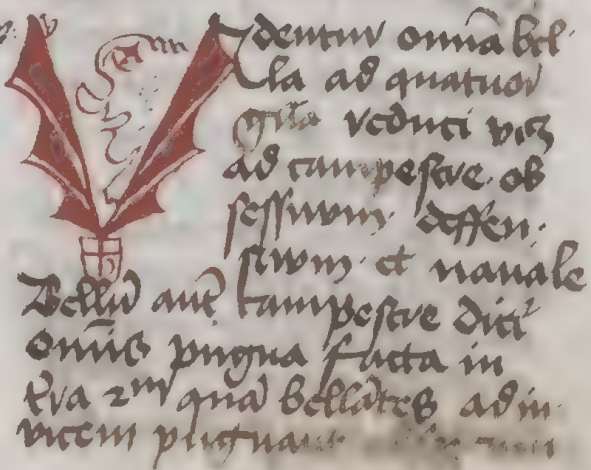 Videntur om̄ia bel
la ad quatuor
gn̄a reduci vicz
ad campestre. ob
sessiuum. deffen
siuum. et nauale
Bellū aut̄ campestre dicit᷑
om̄is pugna facta in
t̄ra in quā bellātes adin
uicem pugnant